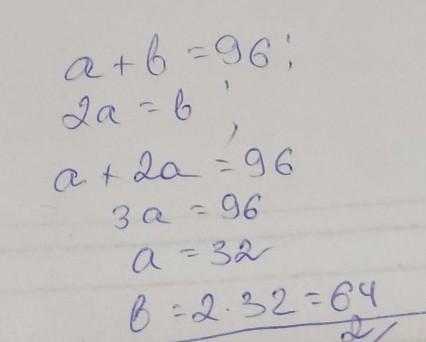 a + b = 96;
2a = b;
a + 2a = 96
3a = 96
a = 32
b = 2 · 32 = 64